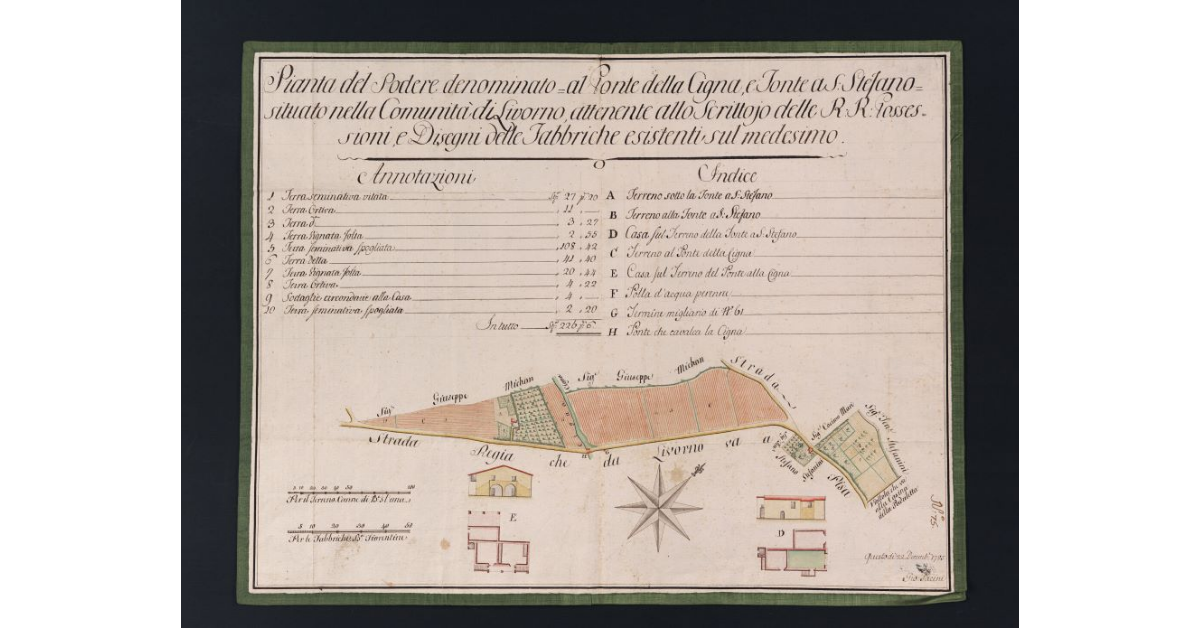 Pianta del Podere denominato = al Ponte della Cigna, e Fonte a S. Stefano =
situato nella Comunità di Livorno, attenente allo Scrittojo delle R. R. Posses-
sioni, e Disegni delle Fabbriche esistenti sul medesimo.
Annotazioni
1 Terra seminativa vitata 27 20
2 Terra Ortiva 11 —
3 Terra d.ª 3 . 27
4 Terra Vignata folta 2 . 55
5 Terra seminativa spogliata 108 . 42
6 Terra detta 41 . 40
7 Terra Vignata folta 20 . 44
8 Terra Ortiva 4 . 22
9 Sodaglie circondarie alla Casa 4 . —
10 Terra seminativa spogliata 2 . 20
In tutto 226 6
Indice
A Terreno sotto la Fonte a S. Stefano
B Terreno alla Fonte a S. Stefano
D Casa sul Terreno della Fonte a S. Stefano
C Terreno al Ponte della Cigna
E Casa sul Terreno del Ponte alla Cigna
F Polla d'acqua perenne
G Termine migliario di Nº 61
H Ponte che cavalca la Cigna
Sig.r Giuseppe Michon
Cigna
Sig.r Giuseppe Michon
Strada
Strada Regia che da Livorno va a Pisa
Stefano
Stefanini
Sig.r Cosimo
Sig.r
Stefanini
Viottola che va
alla Casina
della
Nº 75
5 10 20 30 40 50 100
Per il Terreno Canne di B.a 5 l'una
5 10 20 30 40 50
Per le Fabbriche B.a Fiorentine
E
D
Questo dì
Gio. Pacini